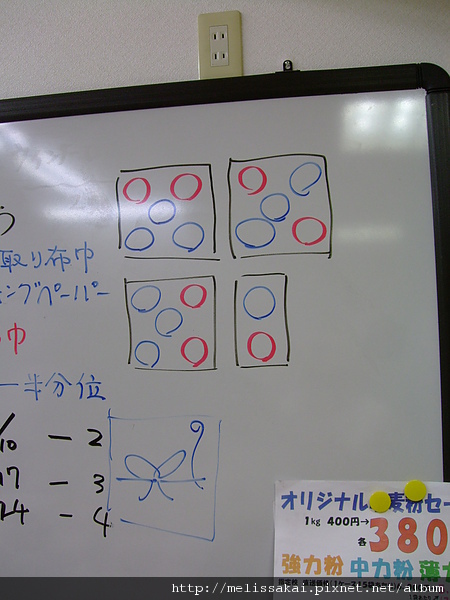 う
取り布巾
キングペーパー
巾
一半分位
/10 － 2
17 － 3
24 － 4
オリジナル 麦粉セー
1kg 400円→
各 380
強力粉 中力粉 薄力
http://melissakai.pixnet.net/album